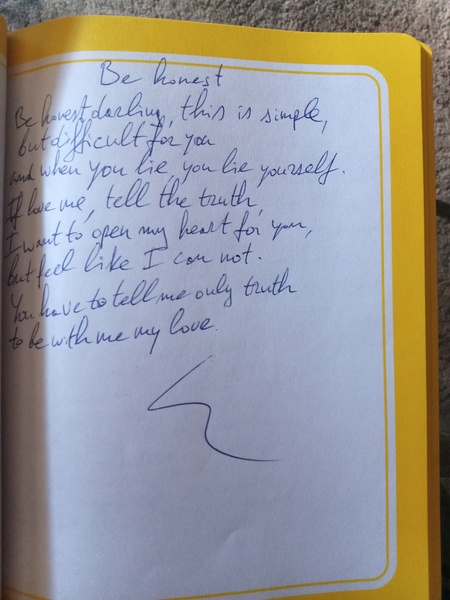 Be honest
Be honest darling, this is simple,
but difficult for you
and when you lie, you lie yourself.
If love me, tell the truth,
I want to open my heart for you,
but feel like I can not.
You have to tell me only truth
to be with me my love.